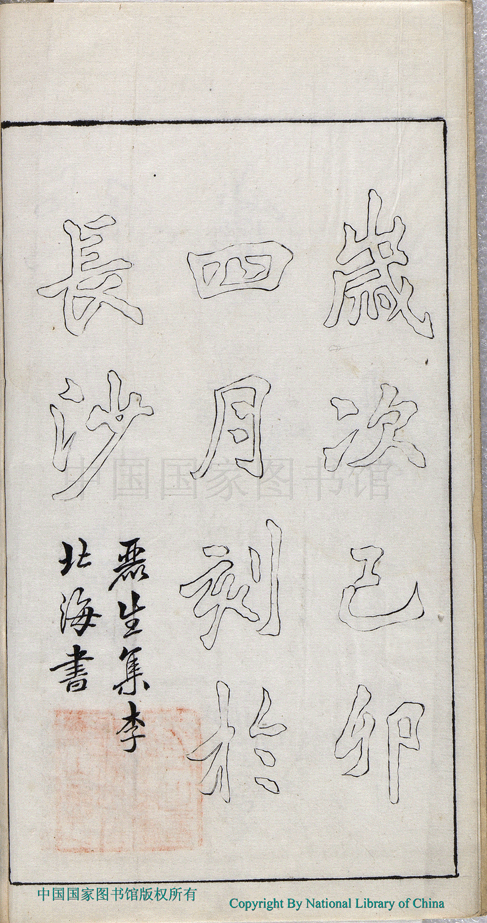 歲次己卯
四月刻於
長沙
麗生集李
北海書
中国国家图书馆
中国国家图书馆版权所有
Copyright By National Library of China